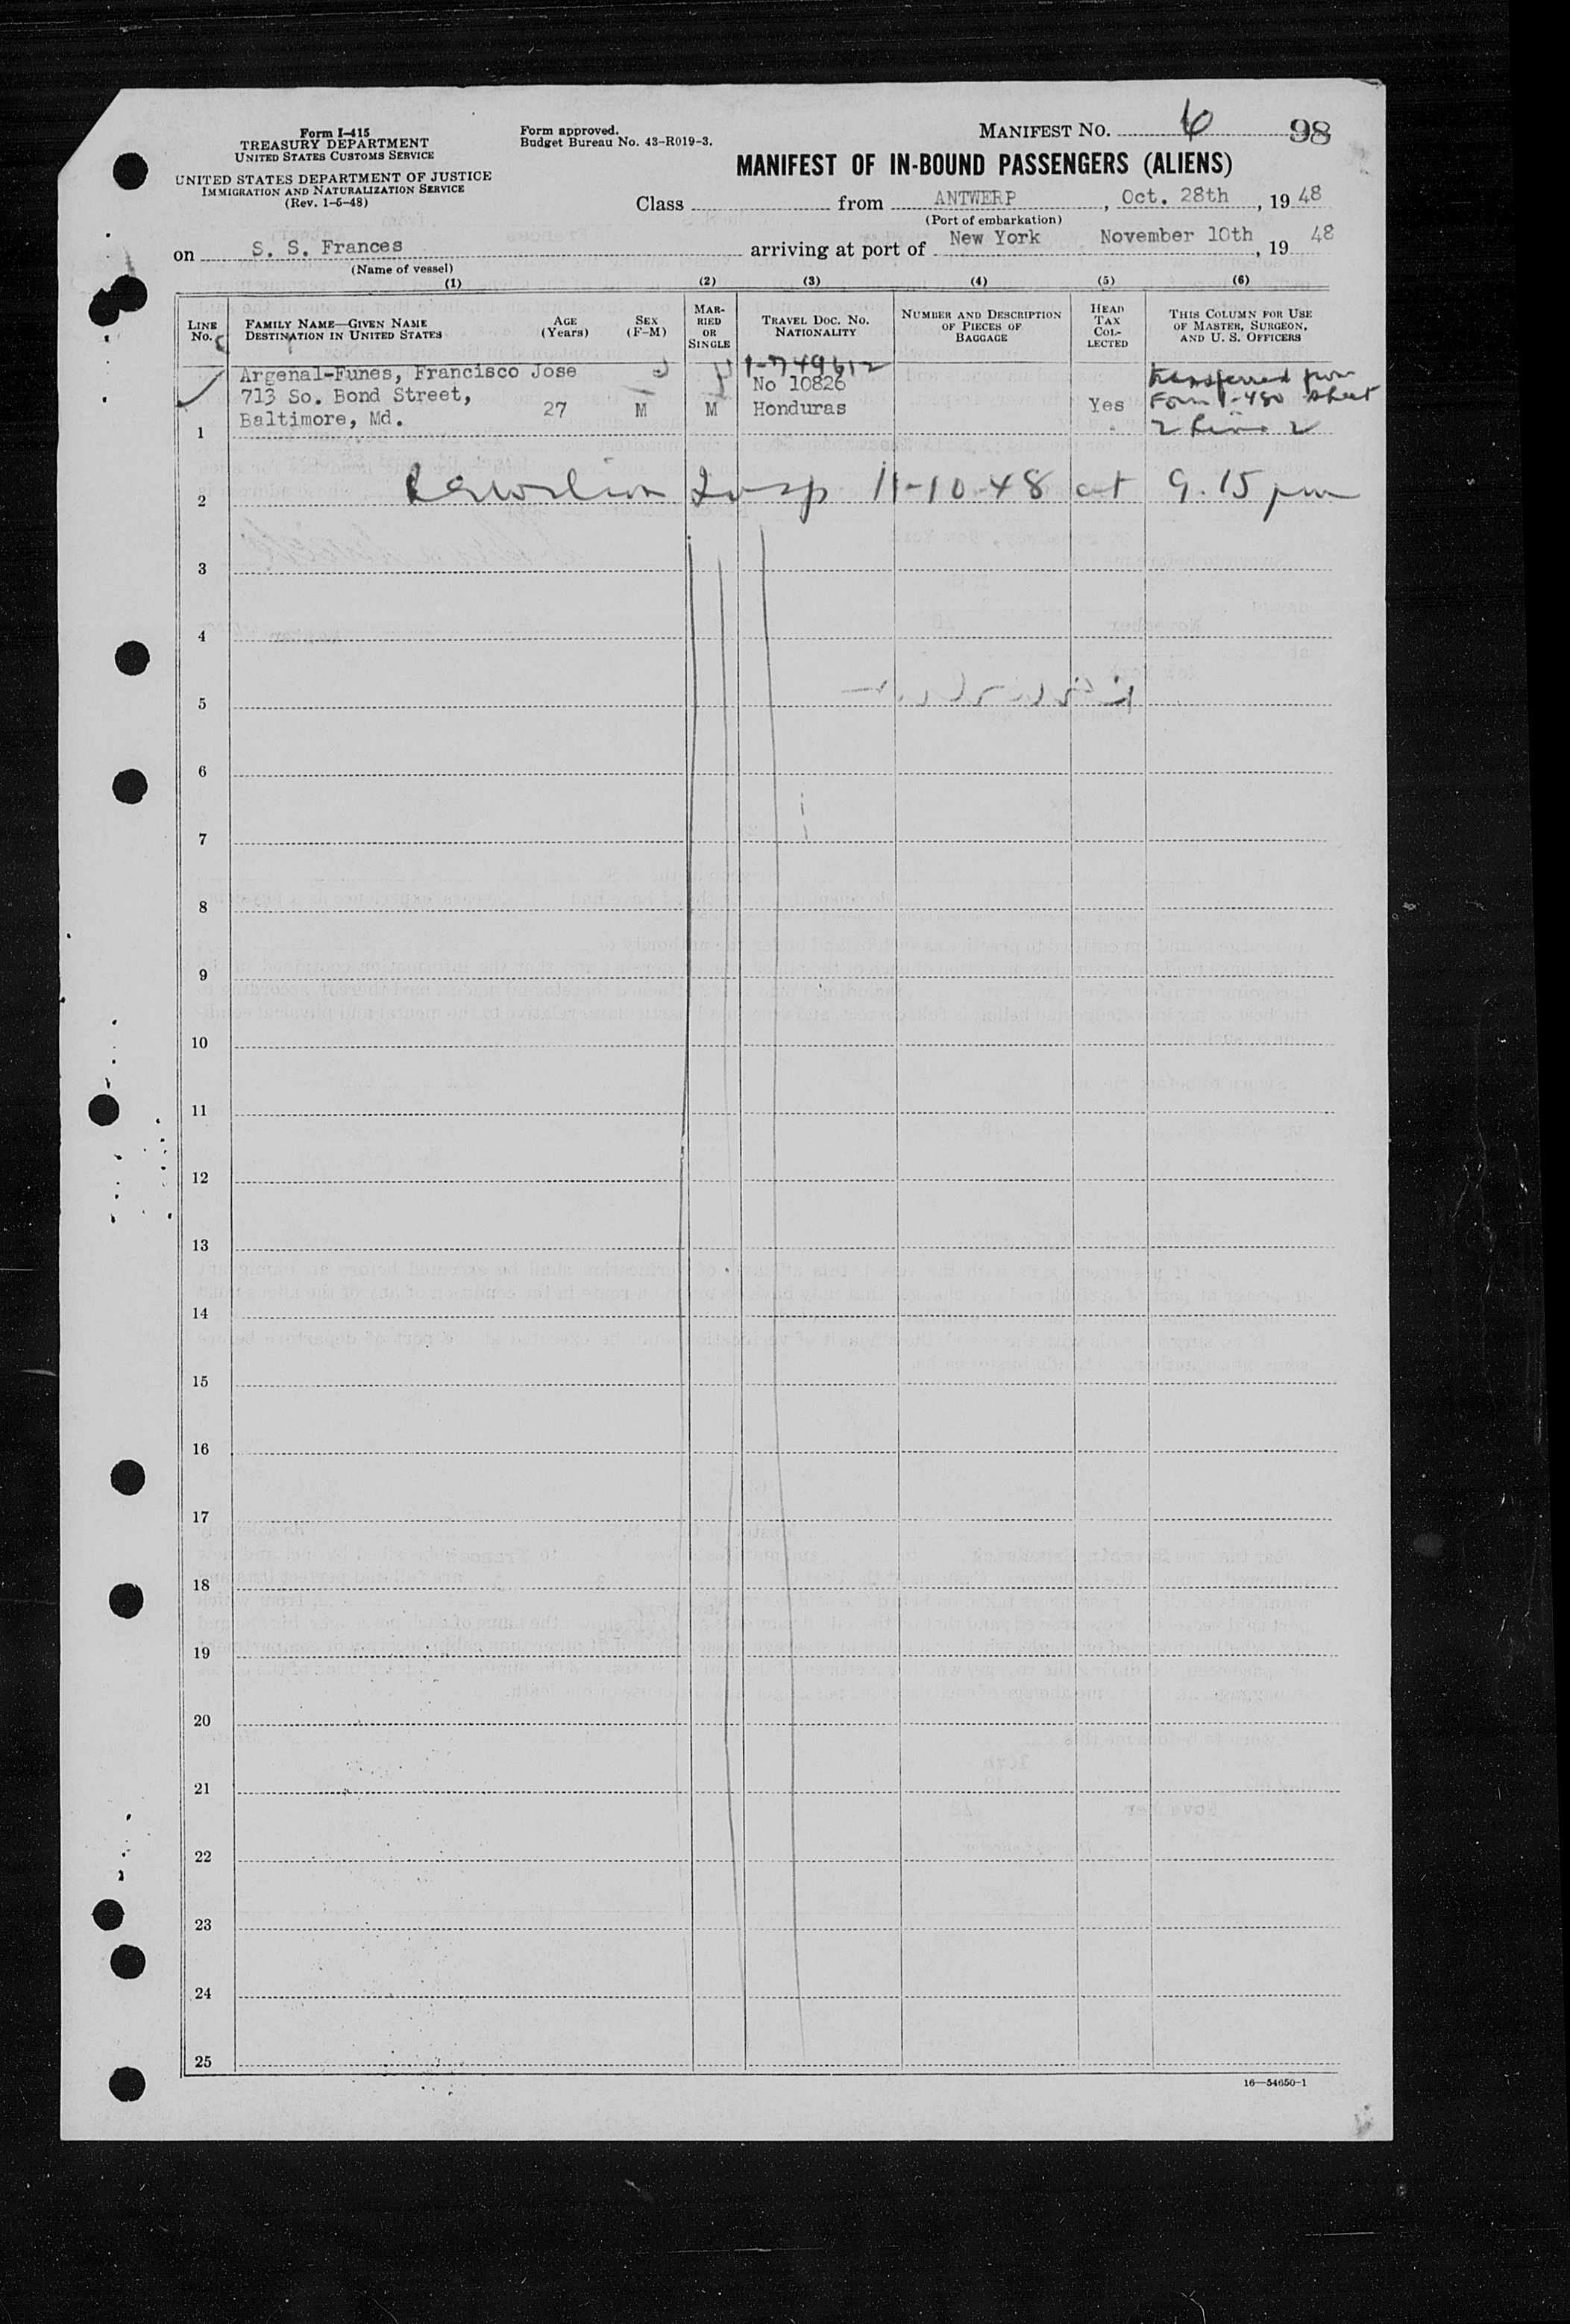 Form I-415
TREASURY DEPARTMENT
UNITED STATES CUSTOMS SERVICE
UNITED STATES DEPARTMENT OF JUSTICE
IMMIGRATION AND NATURALIZATION SERVICE
(Rev. 1-5-48)
Form approved.
Budget Bureau No. 43-R019-3.
MANIFEST NO. 6 98
MANIFEST OF IN-BOUND PASSENGERS (ALIENS)
Class from ANTWERP, Oct. 28th, 1948
(Port of embarkation)
on S. S. Frances arriving at port of New York November 10th, 19 48
(Name of vessel)
(1) (2) (3) (4) (5) (6)
LINE No.
FAMILY NAME—GIVEN NAME
DESTINATION IN UNITED STATES
AGE (Years)
SEX (F-M)
MARRIED OR SINGLE
TRAVEL DOC. NO. NATIONALITY
NUMBER AND DESCRIPTION OF PIECES OF BAGGAGE
HEAD TAX COLLECTED
THIS COLUMN FOR USE OF MASTER, SURGEON, AND U. S. OFFICERS
Argenal-Funes, Francisco Jose
713 So. Bond Street,
Baltimore, Md.
27 M M
No 10826
Honduras
Yes
transferred from
Form I-480 sheet
2 line 2
1
2 Insp 11-10-48 at 9.15 pm
3
4
5
6
7
8
9
10
11
12
13
14
15
16
17
18
19
20
21
22
23
24
25
16—54650-1